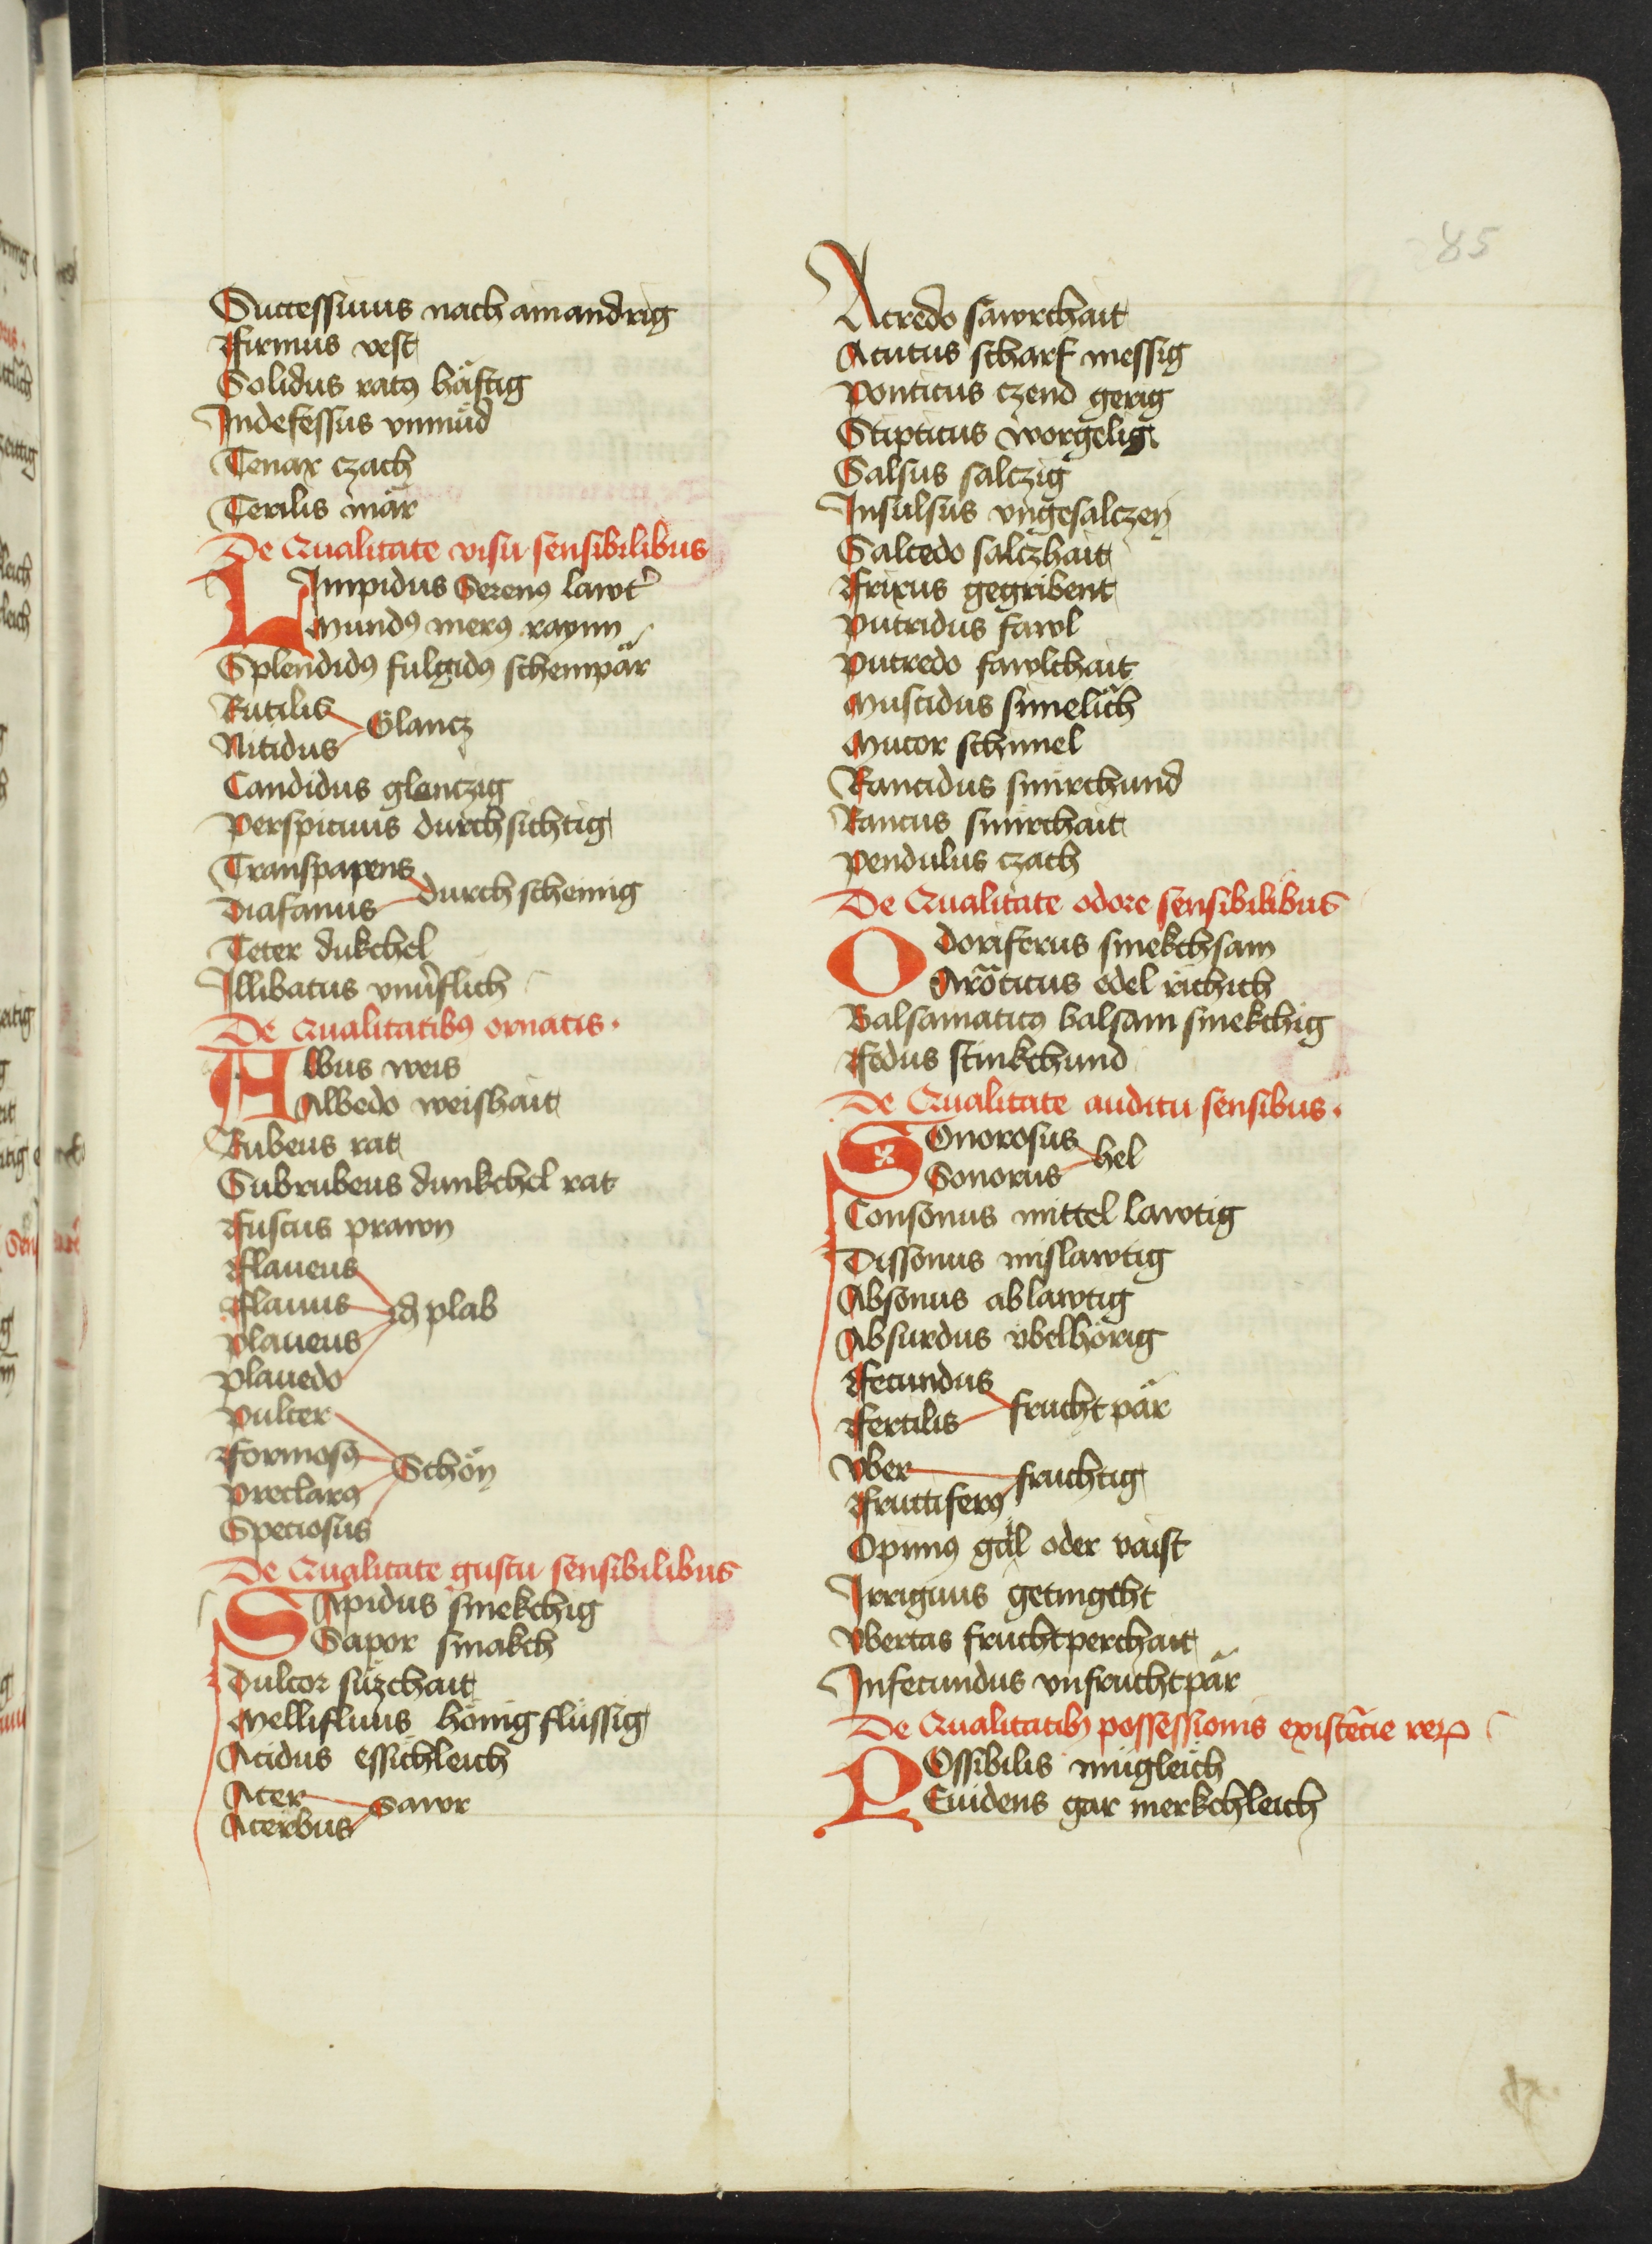 85
Successiuus nach ainandrig
Firmus vest
Solidus ratꝰ häftig
Indefessus vnmüd
Tenax czach
Terilis mär
De Qualitate visu sensibilibus
LImpidus Serenꝰ lawt̉
Mundꝰ merꝰ raynn
Splendidꝰ fulgidꝰ scheinpär
Rutilis
Glancz
Nitidus
Candidus glanczig
Perspicuus durchsichtig
Transparens
durch scheinig
Diafanus
Teter dukchel
Illibatus vnu̇flich
De Qualitatibꝰ ornatis.
ALbus weis
Albedo weishait
Rubeus rat
Subrubeus dunkchel rat
Fuscus prawn
Flaueus
Flauus
plab
Plaueus
Plauedo
Pulcer
Formosꝰ
Schön
Preclarꝰ
Speciosus
De Qualitate gustu sensibilibus
SApidus smekchig
Sapor smakch
Dulcor süzchait
Mellifluus hönig flüssig
Acidus essichleich
Acer
Sawr
Acerbus
Acredo sawrchait
Acutus scharf messig
Ponticus czend gerig
Stipticus worgelig
Salsus salczig
Insulsus vngesalczen
Salcedo salczhait
Frixus gegribent
Putridus fawl
Putredo fawlchait
Muscidus simelich
Mucor schimel
Rancidus smirchund
Rancus smirchait
Pendulus czach
De Qualitate odore sensibilibus
Odoriferus smekchsam
Aroͫticus edel richich
Balsamaticꝰ balsam smekchig
Fedus stinkchund
De Qualitate auditu sensibus.
SOnorosus
hel
Sonorus
Consonus mittel lawtig
Dissonus mislawtig
Absonus ablawtig
Absurdus vbelhörig
Fecundus
frucht pär
Fertilis
Vber
fruchtig
Fructiferꝰ
Opimꝰ gäl oder vaist
Irriguus getungcht
Vbertas fruchtperchait
Infecundus vnfruchtpär
De Qualitatibꝰ possessionis existēcie reꝝ
POssibilis mügleich
Euidens gar merkchleich